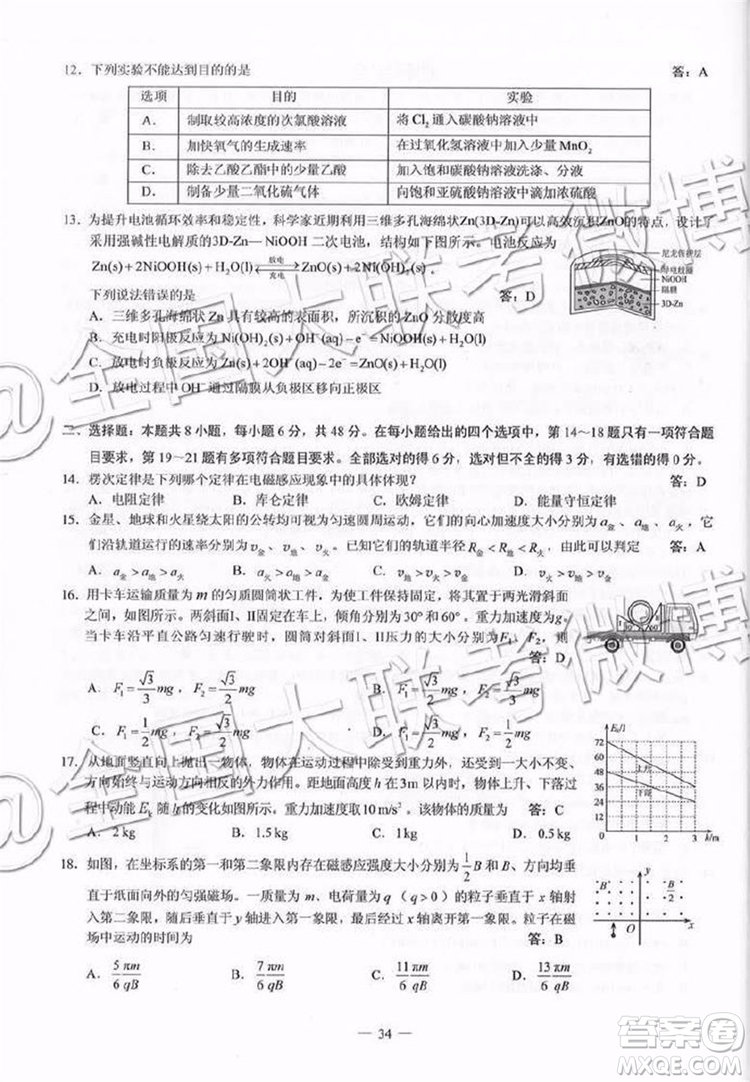 12．下列实验不能达到目的的是 答：A
选项 目的 实验
A． 制取较高浓度的次氯酸溶液 将 Cl₂ 通入碳酸钠溶液中
B． 加快氧气的生成速率 在过氧化氢溶液中加入少量 MnO₂
C． 除去乙酸乙酯中的少量乙酸 加入饱和碳酸钠溶液洗涤、分液
D． 制备少量二氧化硫气体 向饱和亚硫酸钠溶液中滴加浓硫酸
13．为提升电池循环效率和稳定性，科学家近期利用三维多孔海绵状Zn(3D-Zn)可以高效沉积ZnO的特点，设计了
采用强碱性电解质的3D-Zn—NiOOH 二次电池，结构如下图所示。电池反应为
Zn(s)+2NiOOH(s)+H₂O(l) 放电 充电 ZnO(s)+2Ni(OH)₂(s)．
尼龙保护层
导电线圈
NiOOH
隔膜
3D-Zn
下列说法错误的是 答：D
A．三维多孔海绵状 Zn 具有较高的表面积，所沉积的ZnO 分散度高
B．充电时阳极反应为 Ni(OH)₂(s)+OH⁻(aq)−e⁻=NiOOH(s)+H₂O(l)
C．放电时负极反应为 Zn(s)+2OH⁻(aq)−2e⁻=ZnO(s)+H₂O(l)
D．放电过程中 OH⁻通过隔膜从负极区移向正极区
二、选择题：本题共 8 小题，每小题 6 分，共 48 分。在每小题给出的四个选项中，第 14～18 题只有一项符合题
目要求，第 19～21 题有多项符合题目要求。全部选对的得 6 分，选对但不全的得 3 分，有选错的得 0 分。
14．楞次定律是下列哪个定律在电磁感应现象中的具体体现？ 答：D
A．电阻定律 B．库仑定律 C．欧姆定律 D．能量守恒定律
15．金星、地球和火星绕太阳的公转均可视为匀速圆周运动，它们的向心加速度大小分别为 a金、a地、a火，它
们沿轨道运行的速率分别为 v金、v地、v火。已知它们的轨道半径 R金<R地<R火，由此可以判定 答：A
A．a金>a地>a火 B．a火>a地>a金 C．v地>v火>v金 D．v火>v地>v金
16．用卡车运输质量为 m 的匀质圆筒状工件，为使工件保持固定，将其置于两光滑斜面
之间，如图所示。两斜面I、II固定在车上，倾角分别为30° 和60°。重力加速度为g。
当卡车沿平直公路匀速行驶时，圆筒对斜面I、II压力的大小分别为F₁、F₂，则
答：D
A．F₁=√3/3 mg，F₂=√3/2 mg B．F₁=√3/2 mg，F₂=√3/3 mg
C．F₁=1/2 mg，F₂=√3/2 mg D．F₁=√3/2 mg，F₂=1/2 mg
17．从地面竖直向上抛出一物体，物体在运动过程中除受到重力外，还受到一大小不变、
方向始终与运动方向相反的外力作用。距地面高度 h 在 3m 以内时，物体上升、下落过
程中动能 Eₖ 随 h 的变化如图所示。重力加速度取10 m/s²．该物体的质量为 答：C
A．2 kg B．1.5 kg C．1 kg D．0.5 kg
Eₖ/J
72
60
48
36
24
12
上升
下落
0 1 2 3 h/m
18．如图，在坐标系的第一和第二象限内存在磁感应强度大小分别为 1/2 B 和 B、方向均垂
直于纸面向外的匀强磁场。一质量为 m、电荷量为 q（q>0）的粒子垂直于 x 轴射
入第二象限，随后垂直于 y 轴进入第一象限，最后经过 x 轴离开第一象限。粒子在磁
场中运动的时间为 答：B
y
B
B/2
O
x
A．5πm/6qB B．7πm/6qB C．11πm/6qB D．13πm/6qB
— 34 —
@全国大联考微博
@全国大联考微博
答案圈
MXQE.COM